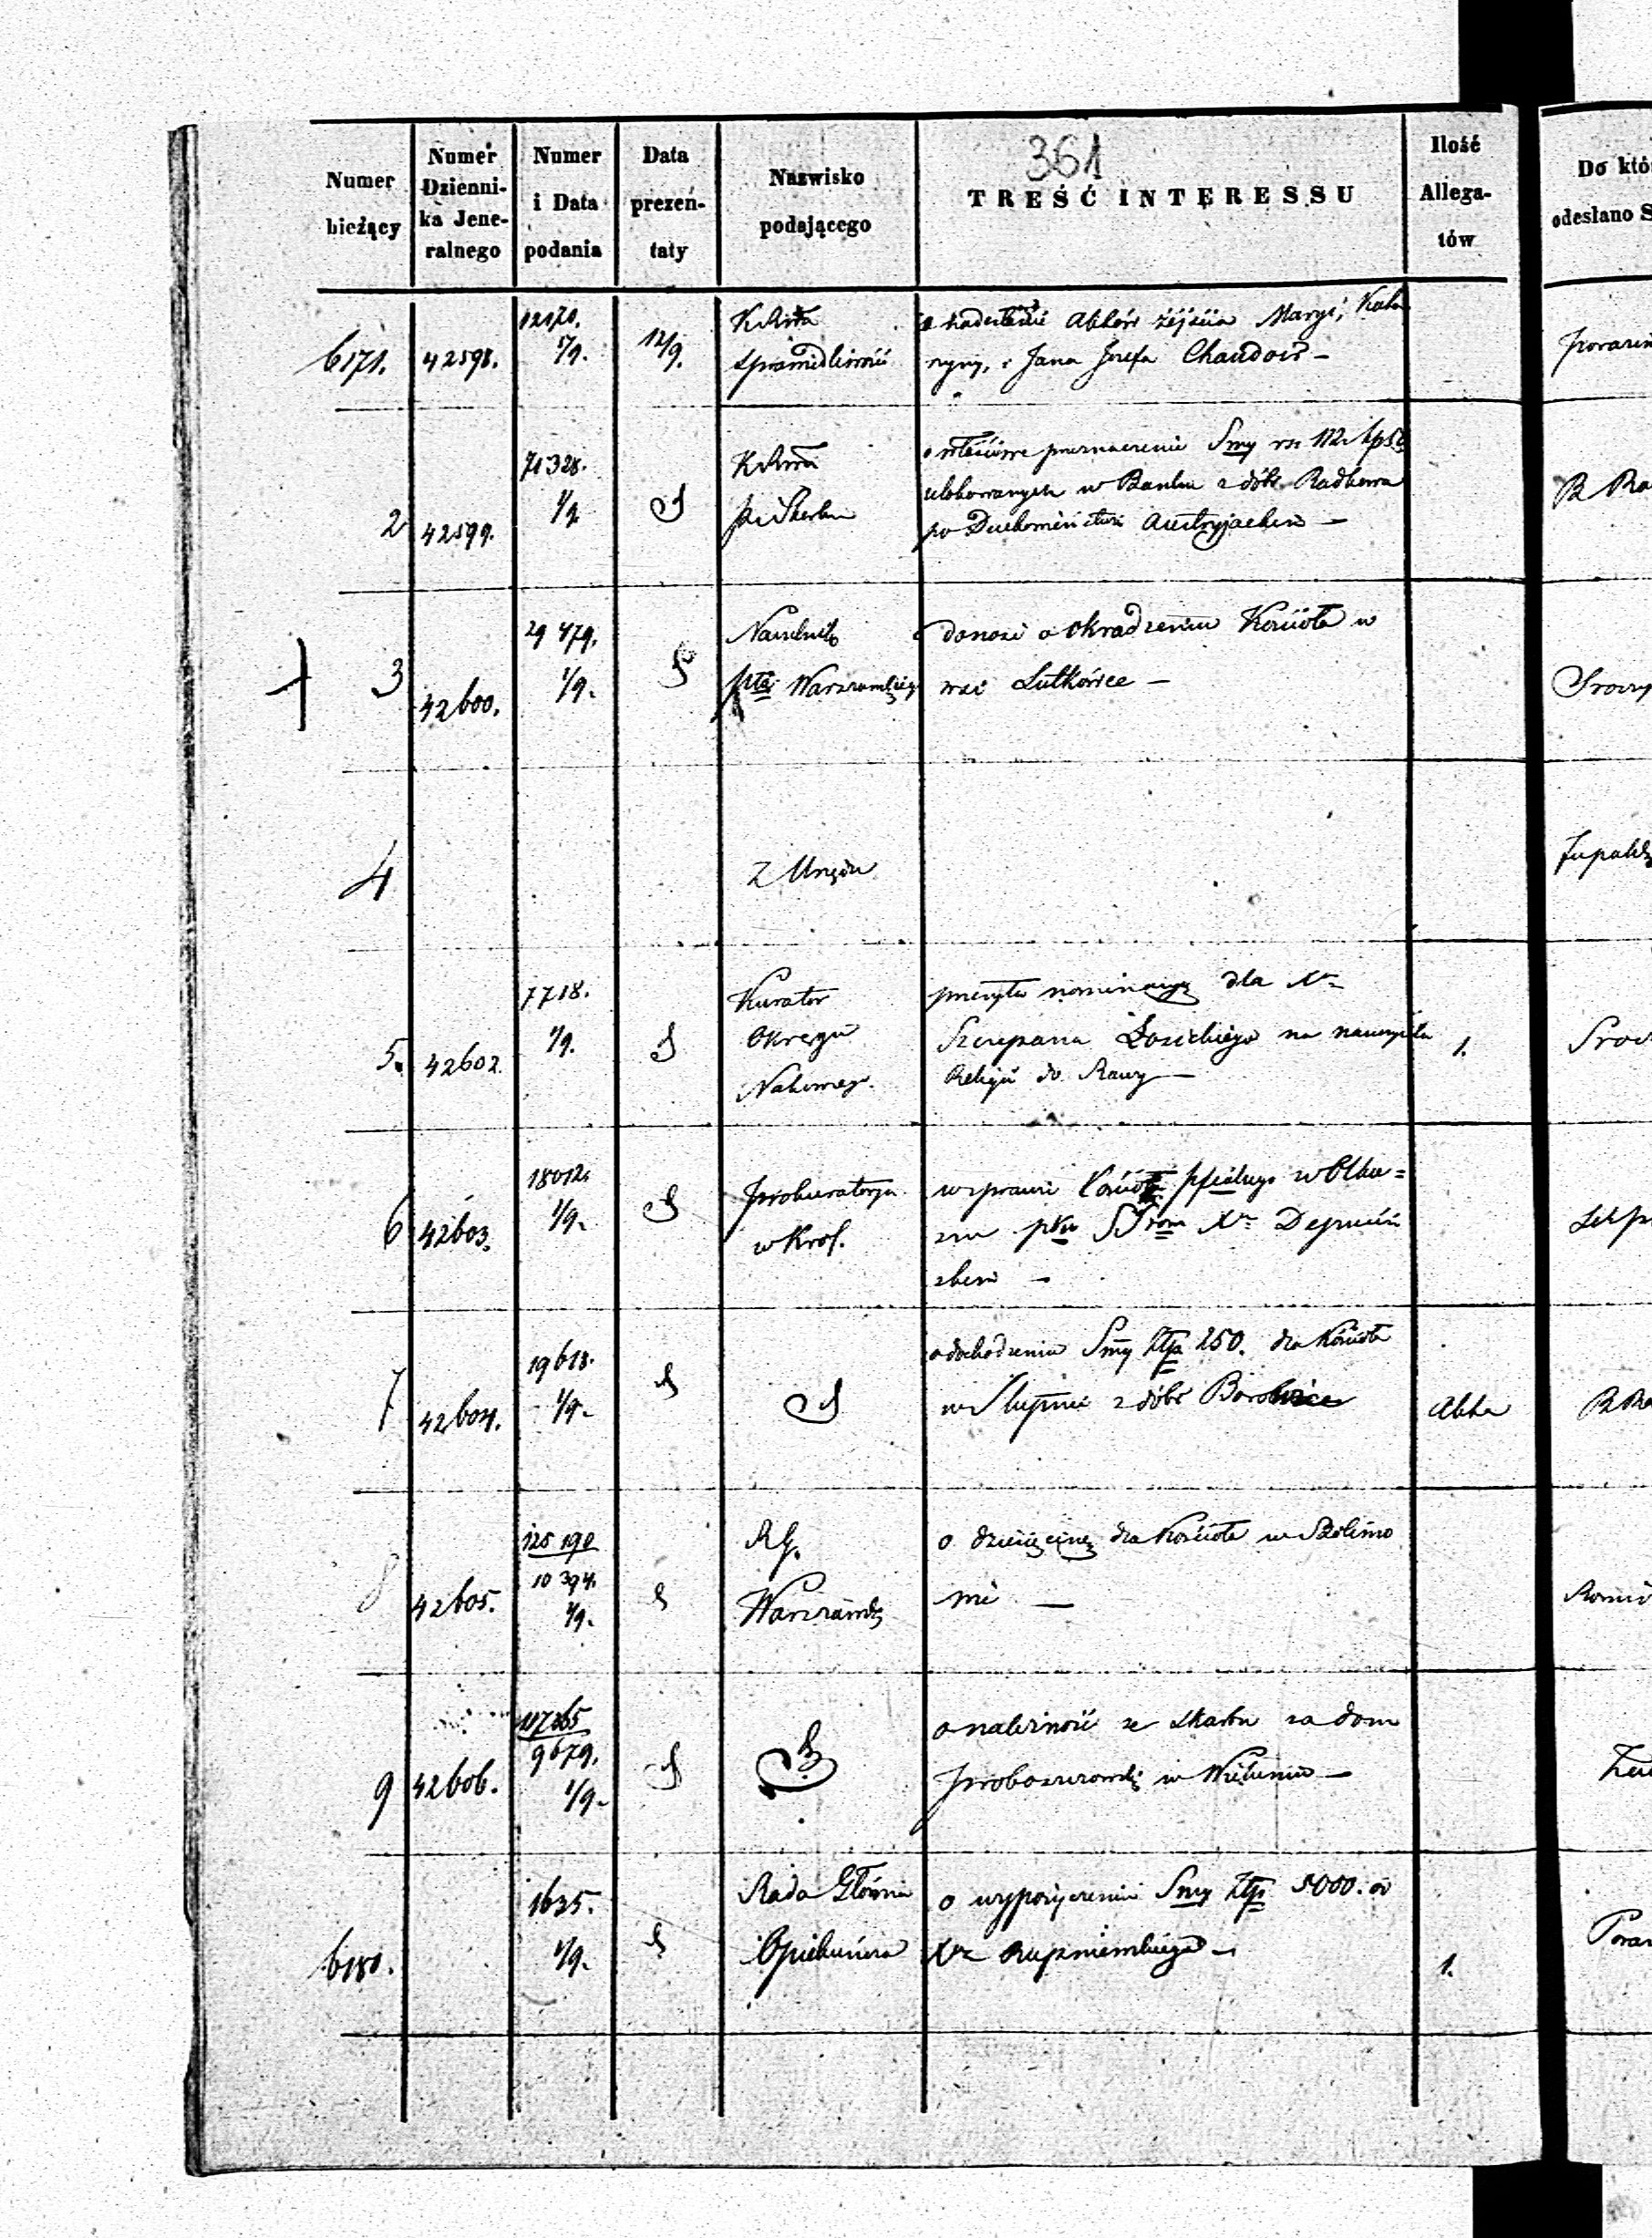 361
Numer bieżący
Numer Dzienni-
ka Jene-
ralnego
Numer
i Data
podania
Data
prezen-
taty
Nazwisko
podającego
TREŚĆ INTERESSU
Ilość
Allega-
tów
Do któ
odesłano S
6171. 42598.
12170.
5/9.
12/9.
Sprawiedliwości
o nadesłanie Aktów zejścia Maryi, Kata
ryny, i Jana Józefa Chaudoir –
2 42599.
71328.
1/9
o właściwe przeznaczenie Smy rs 112 kp
ulokowanych w Banku z dóbr Radkowa
po Duchowieństwie Austryjackim –
3 42600.
29 479.
1/9.
Naczelnik
Ptu Warszawskiego
donosi o okradzeniu Kościoła w
wsi Lutkówce –
4
Z Urzędu
5. 42602.
7718.
1/9.
Kurator
Okręgu
Nakowego.
przesyła nominacyą dla Xa
Szczepana Łosickiego na nauczyciela
Religii do Rawy –
1.
6 42603.
18012.
1/9.
Prokuratorya
w Król.
w sprawie Kościoła w Olku=
szu pko SSrom Xa
–
7 42604.
19618.
1/9.
o dochodzeniu Smy złp 250. dla Kościoła
w Słupni z dóbr Borowice
Akta
8 42605.
125 190
10 394.
1/9.
RG.
Warszawski
o dziesięcinę dla Kościoła w
mie –
9 42606.
117265
9679.
1/9.
o należność ze Skarbu za dom
proboszczowski w Wieluniu –
6180.
1635.
1/9.
Rada Główna
Opiekuńcza
o wypożyczenie Smy złp 5000. od
Xa –
1.